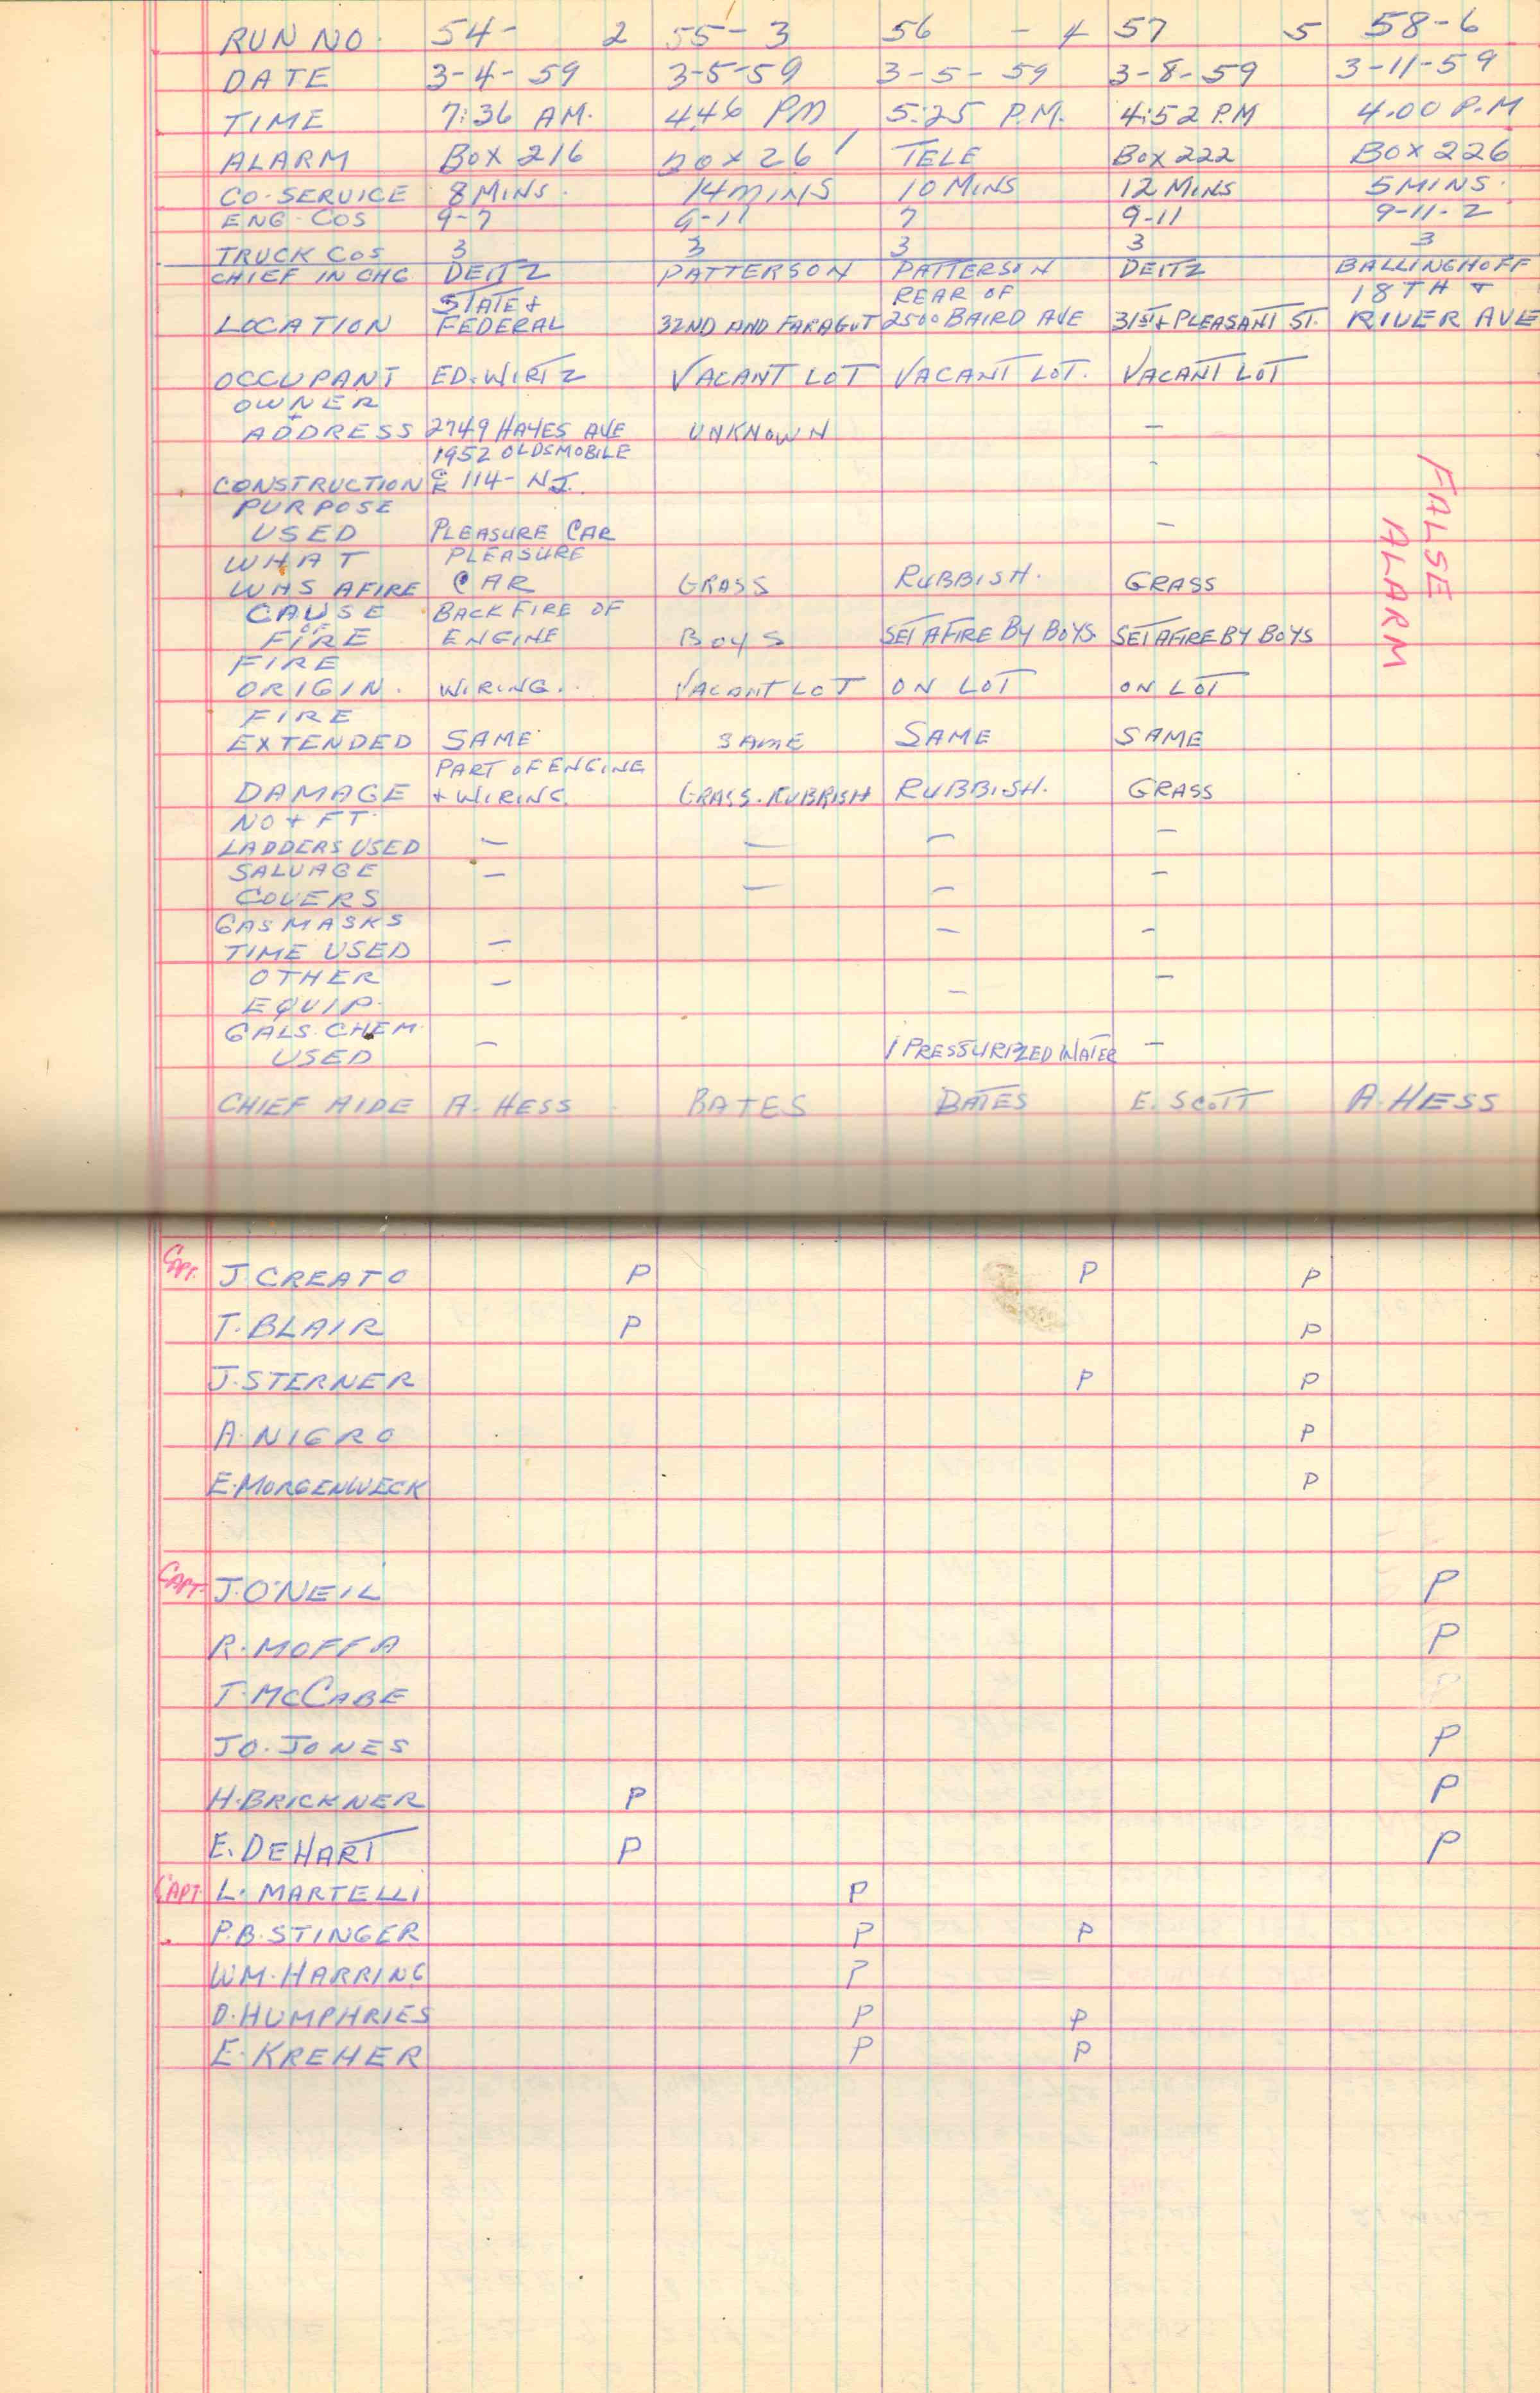 RUN NO. 54- 2 55- 3 56 - 4 57 5 58-6
DATE 3-4-59 3-5-59 3-5-59 3-8-59 3-11-59
TIME 7:36 AM. 446 PM 5:25 P.M. 4:52 P.M 4.00 P.M
ALARM BOX 216 BOX 26 TELE BOX 222 BOX 226
CO-SERVICE 8 MINS. 14 MINS 10 MINS 12 MINS 5 MINS.
ENG-COS 9-7 9-11 7 9-11 9-11-2
TRUCK COS 3 3 3 3 3
CHIEF IN CHG DEITZ PATTERSON PATTERSON DEITZ BALLINGHOFF
STATE + REAR OF 18TH +
LOCATION FEDERAL 32ND AND FARAGUT 2500 BAIRD AVE 31ST + PLEASANT ST. RIVER AVE
OCCUPANT ED. WIRTZ VACANT LOT VACANT LOT. VACANT LOT
OWNER
+
ADDRESS 2749 HAYES AVE UNKNOWN —
1952 OLDSMOBILE
CONSTRUCTION 114- N.J. -
PURPOSE
USED PLEASURE CAR —
WHAT PLEASURE
WAS AFIRE CAR GRASS RUBBISH. GRASS
CAUSE BACKFIRE OF
OF
FIRE ENGINE BOYS SET AFIRE BY BOYS. SET AFIRE BY BOYS
FALSE
ALARM
FIRE
ORIGIN. WIRING. VACANT LOT ON LOT ON LOT
FIRE
EXTENDED SAME SAME SAME SAME
PART OF ENGINE
DAMAGE + WIRING. GRASS-RUBBISH RUBBISH. GRASS
NO + FT.
LADDERS USED — — — —
SALVAGE — —
COVERS — —
GAS MASKS — —
TIME USED —
OTHER — —
EQUIP. —
GALS. CHEM.
USED — 1 PRESSURIZED WATER —
CHIEF AIDE A. HESS BATES BATES E. SCOTT A. HESS
CAPT. J CREATO P P P
T. BLAIR P P
J. STERNER P P
A. NIGRO P
E. MORGENWECK P
CAPT. J. O'NEIL P
R. MOFFA P
T. McCABE
JO. JONES P
H. BRICKNER P P
E. DEHART P P
CAPT. L. MARTELLI P
P.B. STINGER P P
WM. HARRING P
D. HUMPHRIES P P
E. KREHER P P